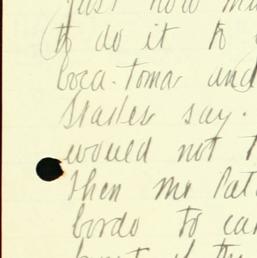 Just now
to do it to
boca-toma and
Stadler say.
would not
then Mr Pat
bordo to ca